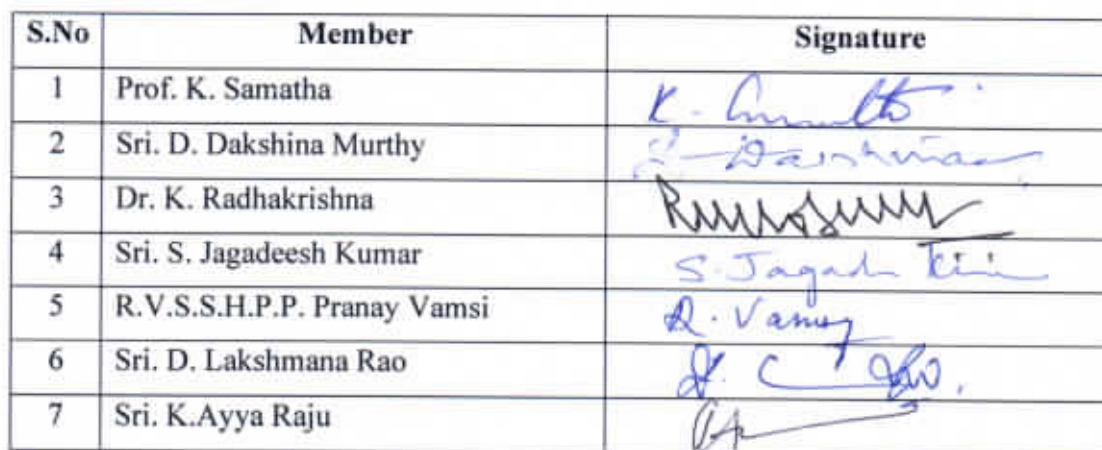 S.No Member Signature
1 Prof. K. Samatha K.
2 Sri. D. Dakshina Murthy
3 Dr. K. Radhakrishna
4 Sri. S. Jagadeesh Kumar S. Jagad
5 R.V.S.S.H.P.P. Pranay Vamsi R. Vamsy
6 Sri. D. Lakshmana Rao
7 Sri. K.Ayya Raju